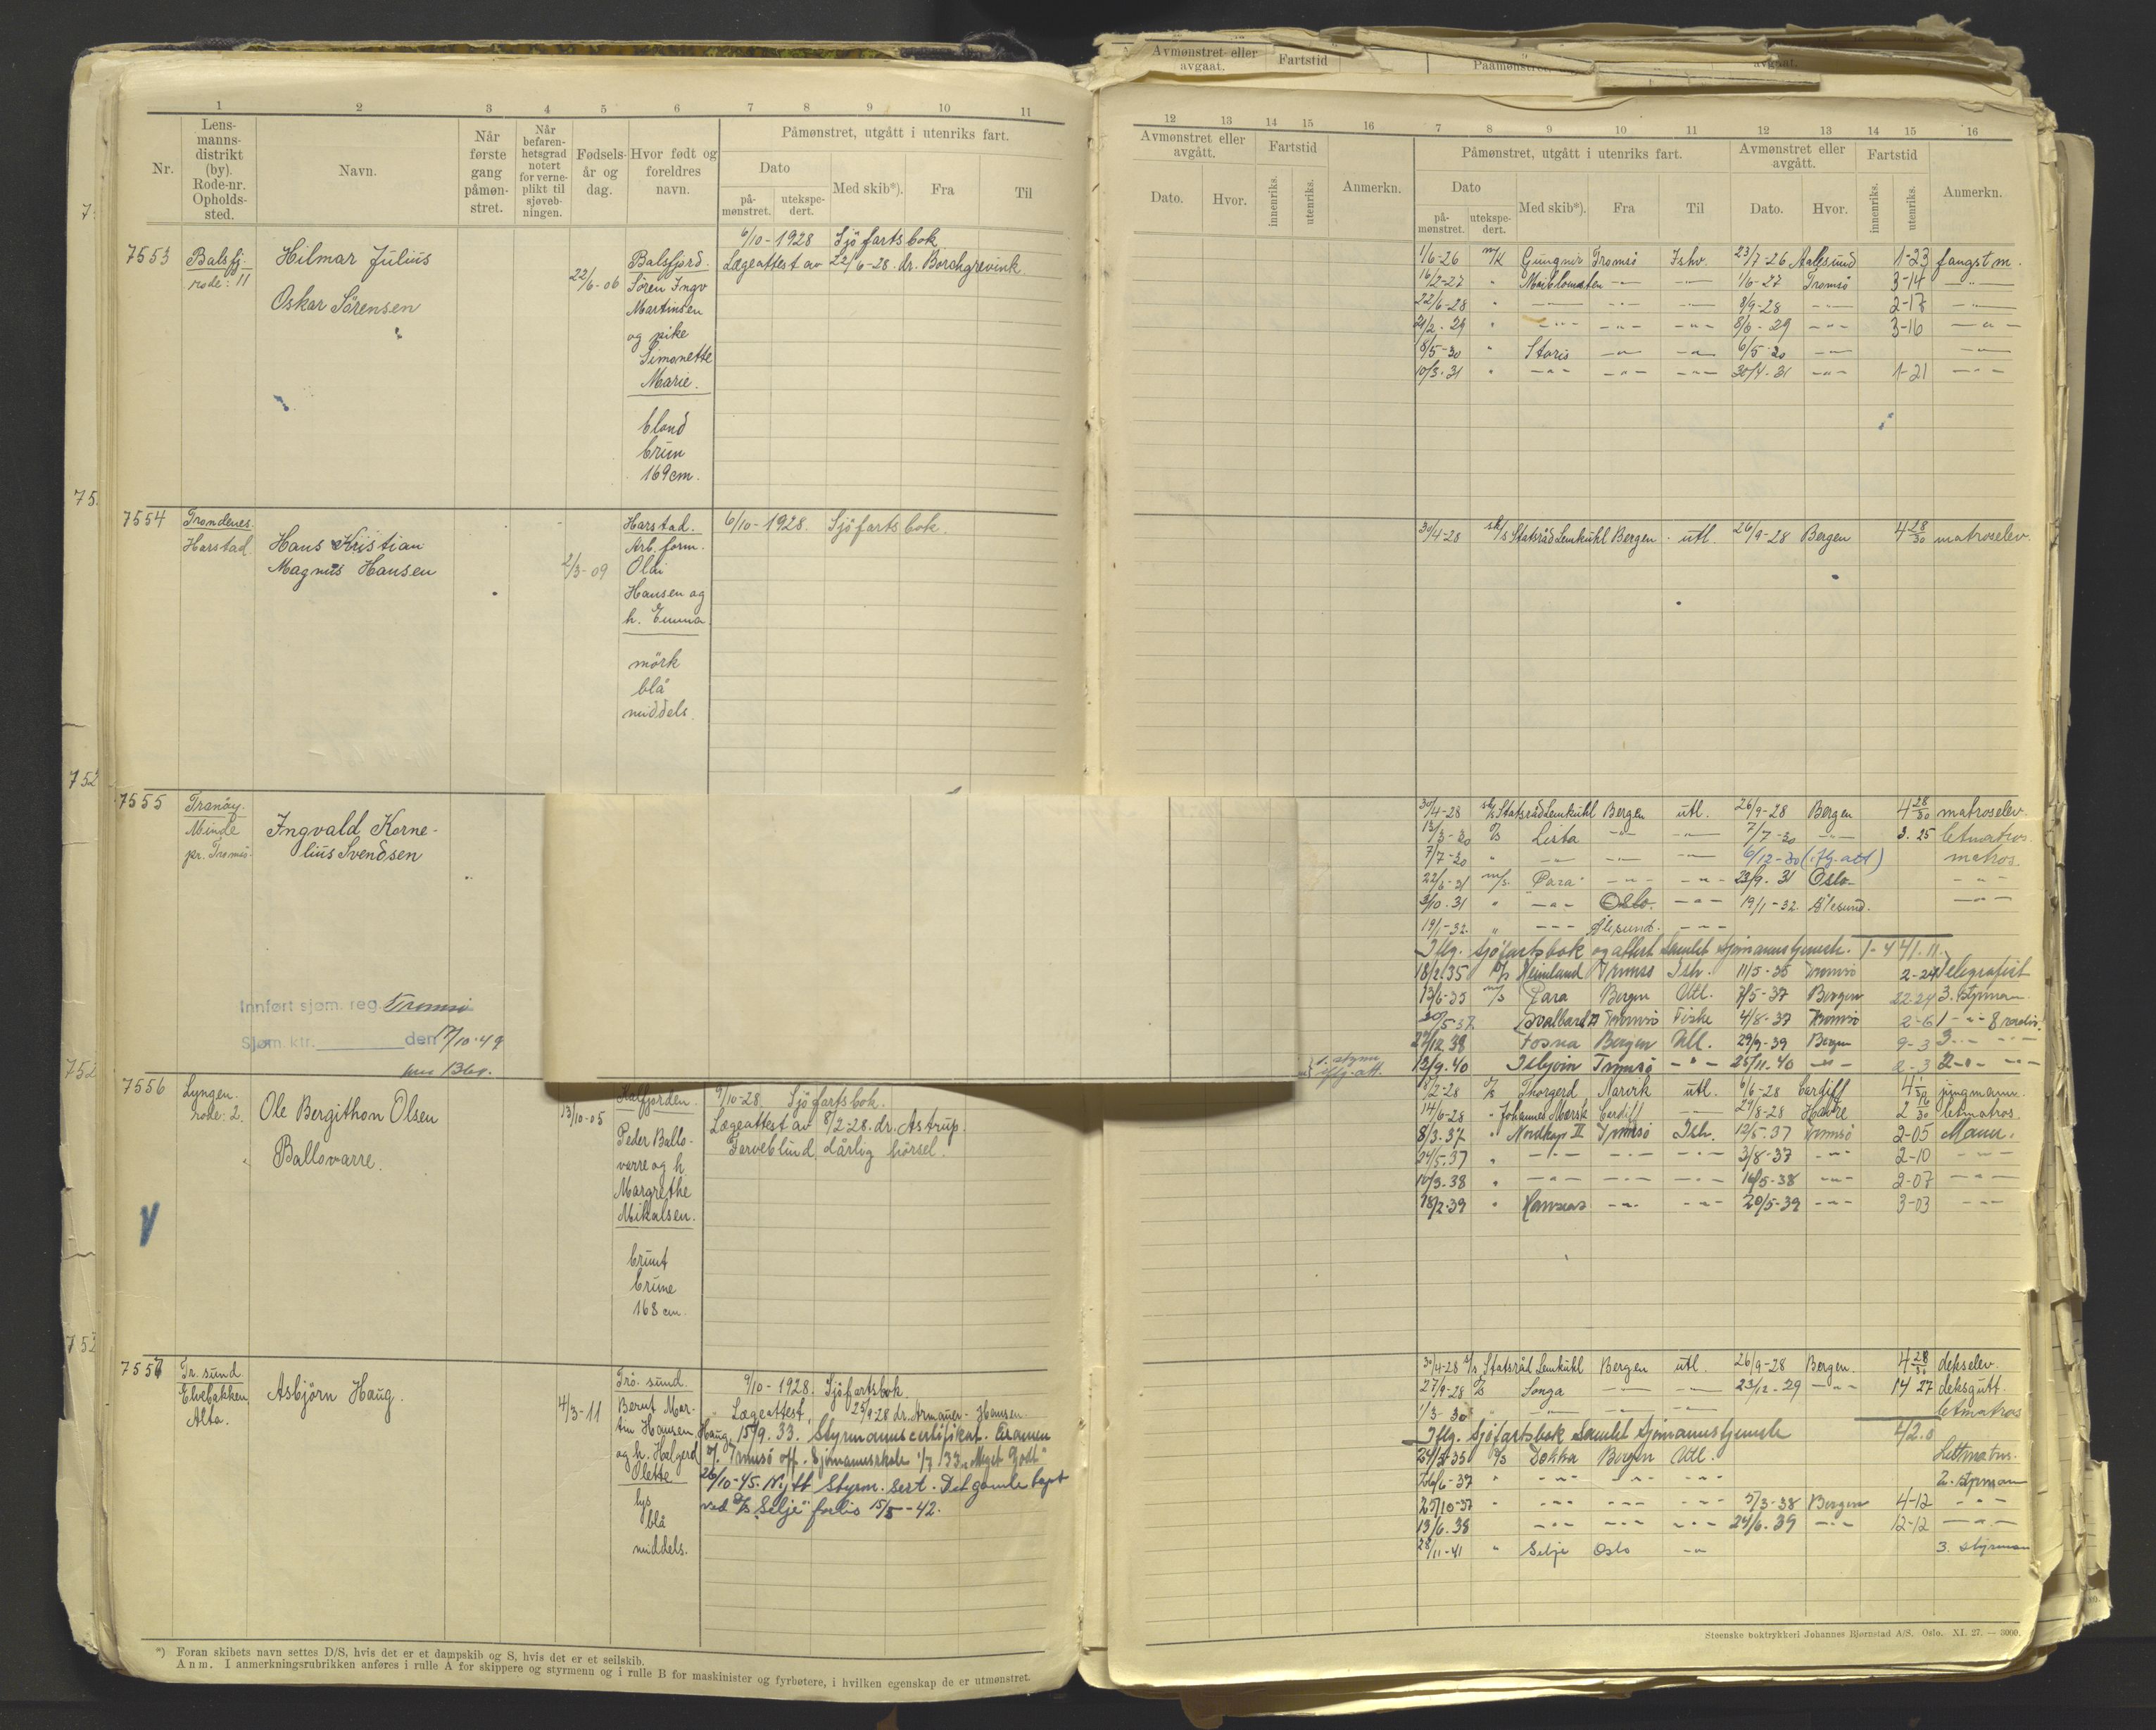 Avmønstret eller avgaat.
Fartstid
1 2 3 4 5 6 7 8 9 10 11
Nr.
Lens-
manns-
distrikt
(by).
Rode-nr.
Opholds-
sted.
Navn.
Når
første
gang
påmøn-
stret.
Når
befaren-
hetsgrad
notert
for verne-
plikt til
sjøveb-
ningen.
Fødsels-
år og
dag.
Hvor født og
foreldres
navn.
Påmønstret, utgått i utenriks fart.
Dato
på-
mønstret.
utekspe-
dert.
Med skib*).
Fra
Til
7553
Balsfj.
rode: 11
Hilmar Julius
Oskar Sörensen
22/6-06
Balsfjord.
Sören Ingv
Martinsen
og pike
Simonette
Marie.
blond
brun
169 cm.
6/10-1928 Sjöfartsbok
Lægeattest av 22/6-28. dr. Borchgrevink.
7554
Trondenes.
Harstad
Hans Kristian
Magnus Hansen
2/3-09
Harstad.
Arb. form.
Olai
Hansen og
h. Emma
mörk
blå
middels.
6/10-1928. Sjöfartsbok.
7555
Tranöy.
Minde
pr. Tromsö
Ingvald Korne-
lius Svendsen
Innført sjøm. reg. Tromsö
Sjøm. ktr. den 17/10-49
7556
Lyngen.
rode: 2.
Ole Bergithon Olsen
Ballovarre.
13/10-05
Kalfjorden.
Peder Ballo-
varre og h.
Margrethe
Mikalsen.
brunt
brune
168 cm.
9/10-28. Sjöfartsbok.
Lægeattest av 8/2-28. dr. Astrup.
Farveblind, dårlig hörsel.
7557
Tr. sund.
Elvebakken
Alta.
Asbjörn Haug.
4/3-11
Trö. sund.
Bernt Mar-
tin Hansen Haug
og h. Helgerd
Olette
lys
blå
middels.
9/10-1928. Sjöfartsbok.
Lægeattest, 25/9 28 dr. Armauer-Hansen
15/9. 33. Styrmannscertifikat. Eksamen
v/ Tromsö off. Sjömannsskole 1/7 33 "Meget Godt"
26/10-45. Nytt Styrm. Sert. Det gamle tapt
ved D/S "Selje" forlis 15/5-42.
*) Foran skibets navn settes D/S, hvis det er et dampskib og S, hvis det er et seilskib.
Anm. I anmerkningsrubrikken anføres i rulle A for skippere og styrmenn og i rulle B for maskinister og fyrbøtere, i hvilken egenskap de er utmønstret.
12 13 14 15 16 7 8 9 10 11 12 13 14 15 16
Avmønstret eller
avgått.
Fartstid
Dato.
Hvor.
innenriks.
utenriks.
Anmerkn.
Påmønstret, utgått i utenriks fart.
Dato
på-
mønstret.
utekspe-
dert.
Med skib*).
Fra
Til
Avmønstret eller
avgått.
Dato.
Hvor.
Fartstid
innenriks.
utenriks.
Anmerkn.
1/6-26 m/k Gungnir Tromsö Ishv. 23/7-26 Aalesund 1-23 fangstm.
16/2-27 " Maiblomsten -"- -"- 1/6-27 Tromsö 3-14 -"-
22/6-28 " -"- -"- -"- 8/9-28 -"- 2-17 -"-
21/2-29 " -"- -"- -"- 8/6-29 -"- 3-16 -"-
8/5-30 " Storis -"- -"- 6/5-30 -"- -"-
10/3-31 " -"- -"- -"- 30/4-31 -"- 1-21 -"-
30/4-28 sk/s Statsråd Lemkuhl Bergen utl. 26/9-28 Bergen 4 28/30 matroselev.
30/4-28 sk/s Statsråd Lemkuhl Bergen utl. 26/9-28 Bergen 4 28/30 matroselev.
13/3-30 D/S Lista -"- -"- 7/7-30 -"- 3.25 letmatros.
7/7-30 " -"- -"- -"- 6/12-30 (ifg. att) matros.
22/6-31 m/s. "Para" -"- -"- 23/9-31 Oslo -"-
3/10-31 " -"- Oslo. -"- 19/1-32. Ålesund. -"-
19/1-32. " -"- Ålesund. -"-
Iflg. sjöfartsbok og attest samlet sjömannstjeneste.
18/2.35 Heimland Tromsö Ish. 11/5-35 Tromsö 2-24 Telegrafist
13/6-35 m/s Para Bergen Utl. 7/5-37 Bergen 22.24 3. styrmann
20/5-37 Svalbard II Tromsö Fiske 4/8-37 Tromsö 2-6
27/12 38 Fosna Bergen Utl. 29/9-39 Bergen 9-3 3 -"-
12/9.40 Isbjörn Tromsö -"- 25/11-40 -"- 2-3 2 -"-
1. styrm.
iflg. att.
8/2-28 D/S Thorgerd, Narvik utl. 6/6-28 Cardiff jungmann.
14/6-28 " Johannes Mærsk Cardiff -"- 29/8-28 Havre 2 16/30 letmatros.
8/3-37 " Nordkap II Tromsö Ish. 12/5-37 Tromsö 2-05 Mann.
24/5-37 " -"- -"- -"- 3/8-37 -"- 2-10 -"-
10/3-38 " -"- -"- -"- 16/5-38 -"- 2-07 -"-
18/2-39 " -"- -"- 20/5-39 -"- 3-03 -"-
30/4-28 s/s Statsråd Lemkuhl Bergen utl. 26/9-28 Bergen. 4 28/30 dekselev.
27/9-28 D/S Songa -"- -"- 23/12-29 -"- 14 27 deksgutt.
1/3-30 " -"- -"- -"- letmatros
Iflg. Sjöfartsbok samlet sjömannstjeneste 42.0
24/5-35 D/S Dokka Bergen Utl. Lettmatros.
26/6-37 " -"- -"- -"- 2. styrman
25/10-37 " -"- -"- -"- 5/3-38 Bergen 4-12 -"-
13/6.38 -"- -"- -"- 24/6.39 -"- 12-12 -"-
28/11-41 " Selje Oslo -"- 3. styrman
Steenske boktrykkeri Johannes Bjørnstad A/S. Oslo. XI. 27. — 3000.